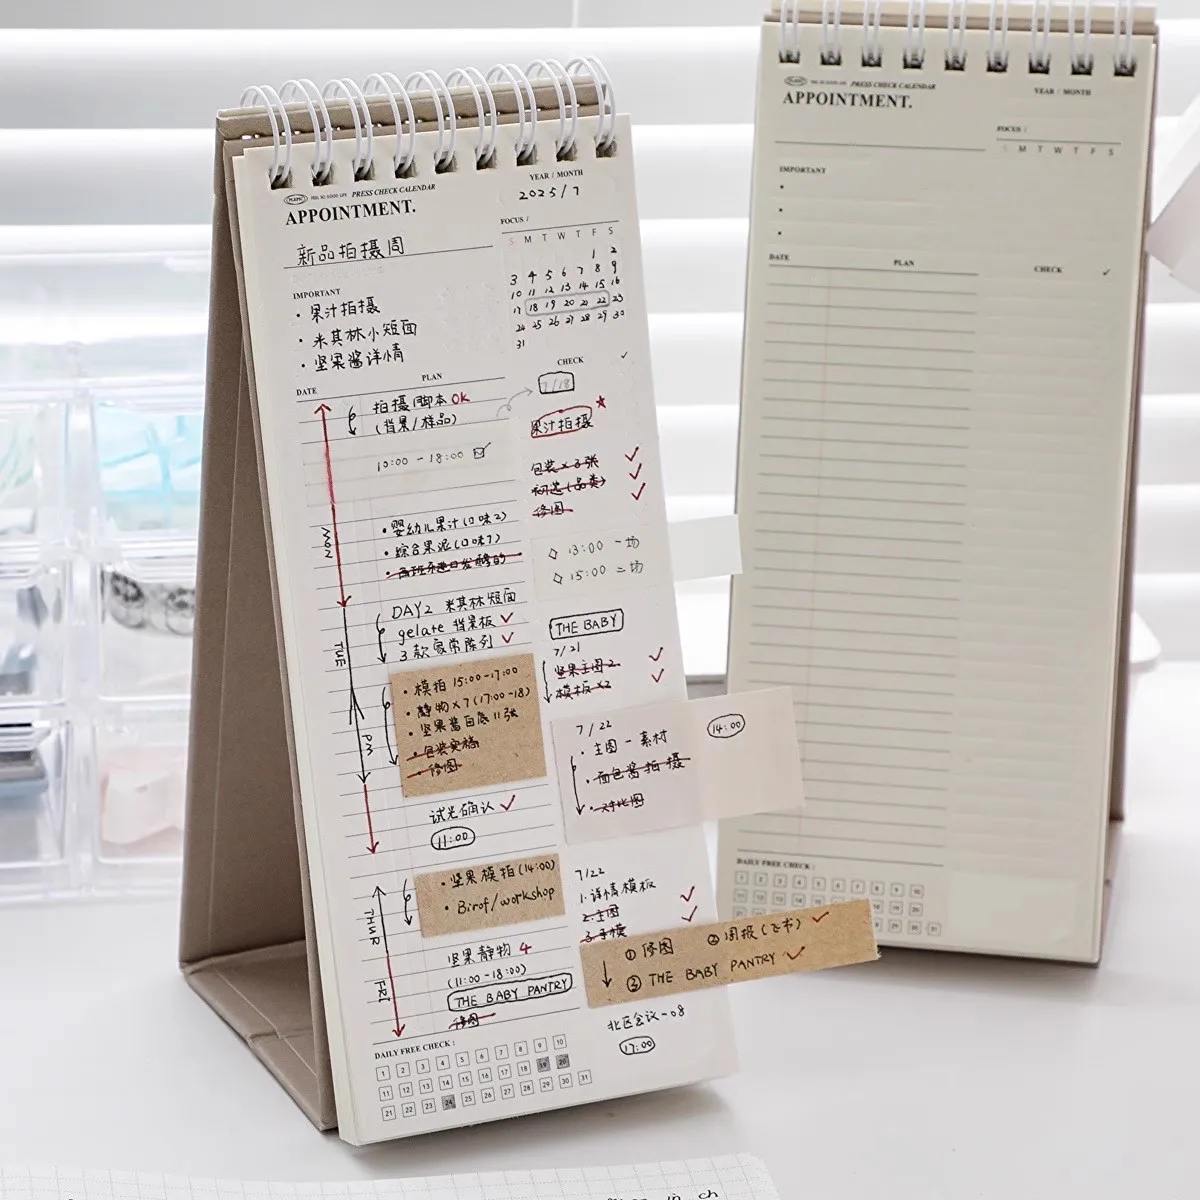 PRESS CHECK CALENDAR
APPOINTMENT.
YEAR / MONTH
2025/7
新品拍摄周
FOCUS /
S M T W T F S
1 2
3 4 5 6 7 8 9
10 11 12 13 14 15 16
17 18 19 20 21 22 23
24 25 26 27 28 29 30
31
IMPORTANT
· 果汁拍摄
· 米其林小短面
· 坚果酱详情
DATE
PLAN
CHECK ✓
拍摄脚本OK
(背果/样品)
10:00 - 18:00
MON
· 婴幼儿果汁(口味2)
· 综合果泥(口味7)
DAY2 米其林短面
gelate 背果板 ✓
3款家常陈列 ✓
TUE
PM
· 模拍 15:00-17:00
· 静物×7(17:00-18)
· 坚果酱白底11张
· 包装实稿
· 修图
试光确认 ✓
11:00
THUR
· 坚果模拍(14:00)
· Birof/workshop
坚果静物 4
(11:00-18:00)
THE BABY PANTRY
修图
FRI
7/18
果汁拍摄
包装×3张 ✓
初选(品类) ✓
修图 ✓
◇ 13:00 一场
◇ 15:00 二场
THE BABY
7/21
坚果主图2 ✓
模板×2 ✓
7/22
14:00
· 主图-素材
· 面包酱拍摄
· 对比图
7/22
1.详情模板
2.主图 ✓
3.手模 ✓
① 修图 ② 周报(飞书) ✓
③ THE BABY PANTRY ✓
北区会议-08
17:00
DAILY FREE CHECK :
1 2 3 4 5 6 7 8 9 10
11 12 13 14 15 16 17 18 19 20
21 22 23 24 25 26 27 28 29 30 31
PRESS CHECK CALENDAR
APPOINTMENT.
YEAR / MONTH
FOCUS /
S M T W T F S
IMPORTANT
DATE
PLAN
CHECK ✓
DAILY FREE CHECK :